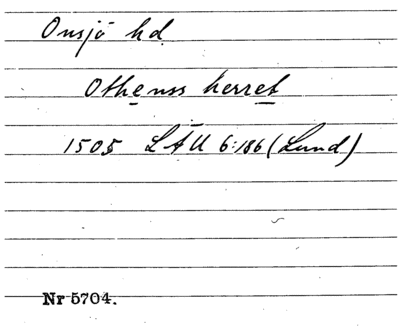 Onsjö hd.
Othenss herret
1505 LÄU 6:186 (Lund)
Nr 5704.